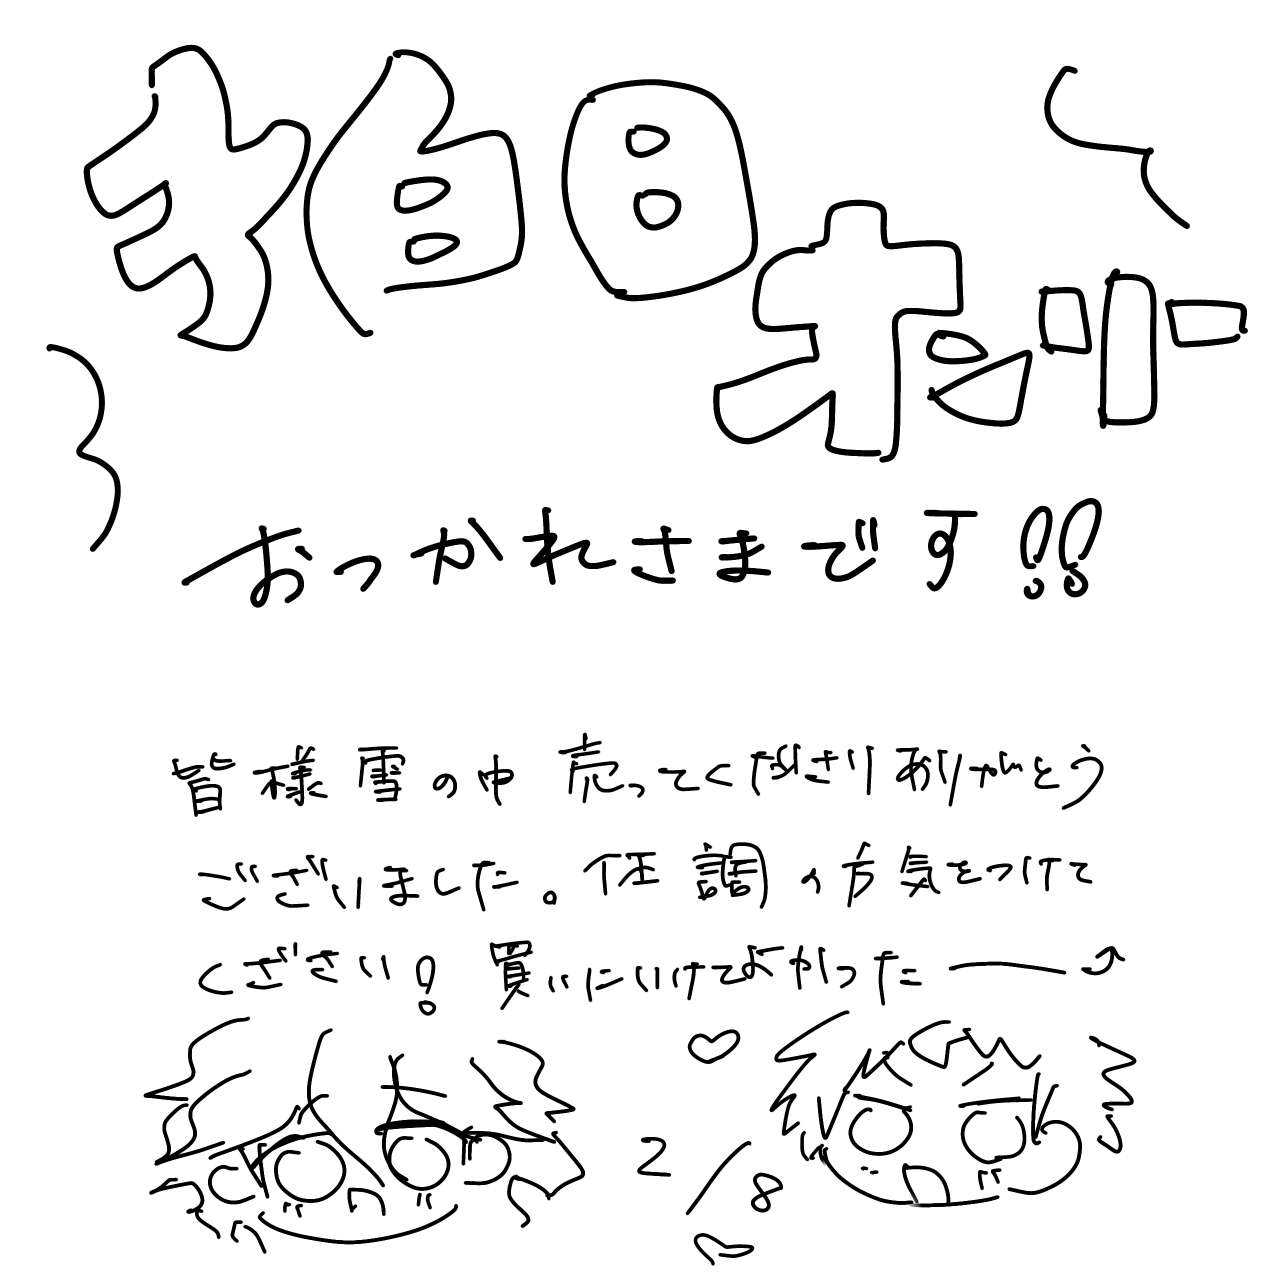 拍日オンリー
おっかれさまです!!
皆様雪の中売ってくださりありがとう
ございました。体調の方気をつけて
くださざい! 買いにいけてよかったー
2/8